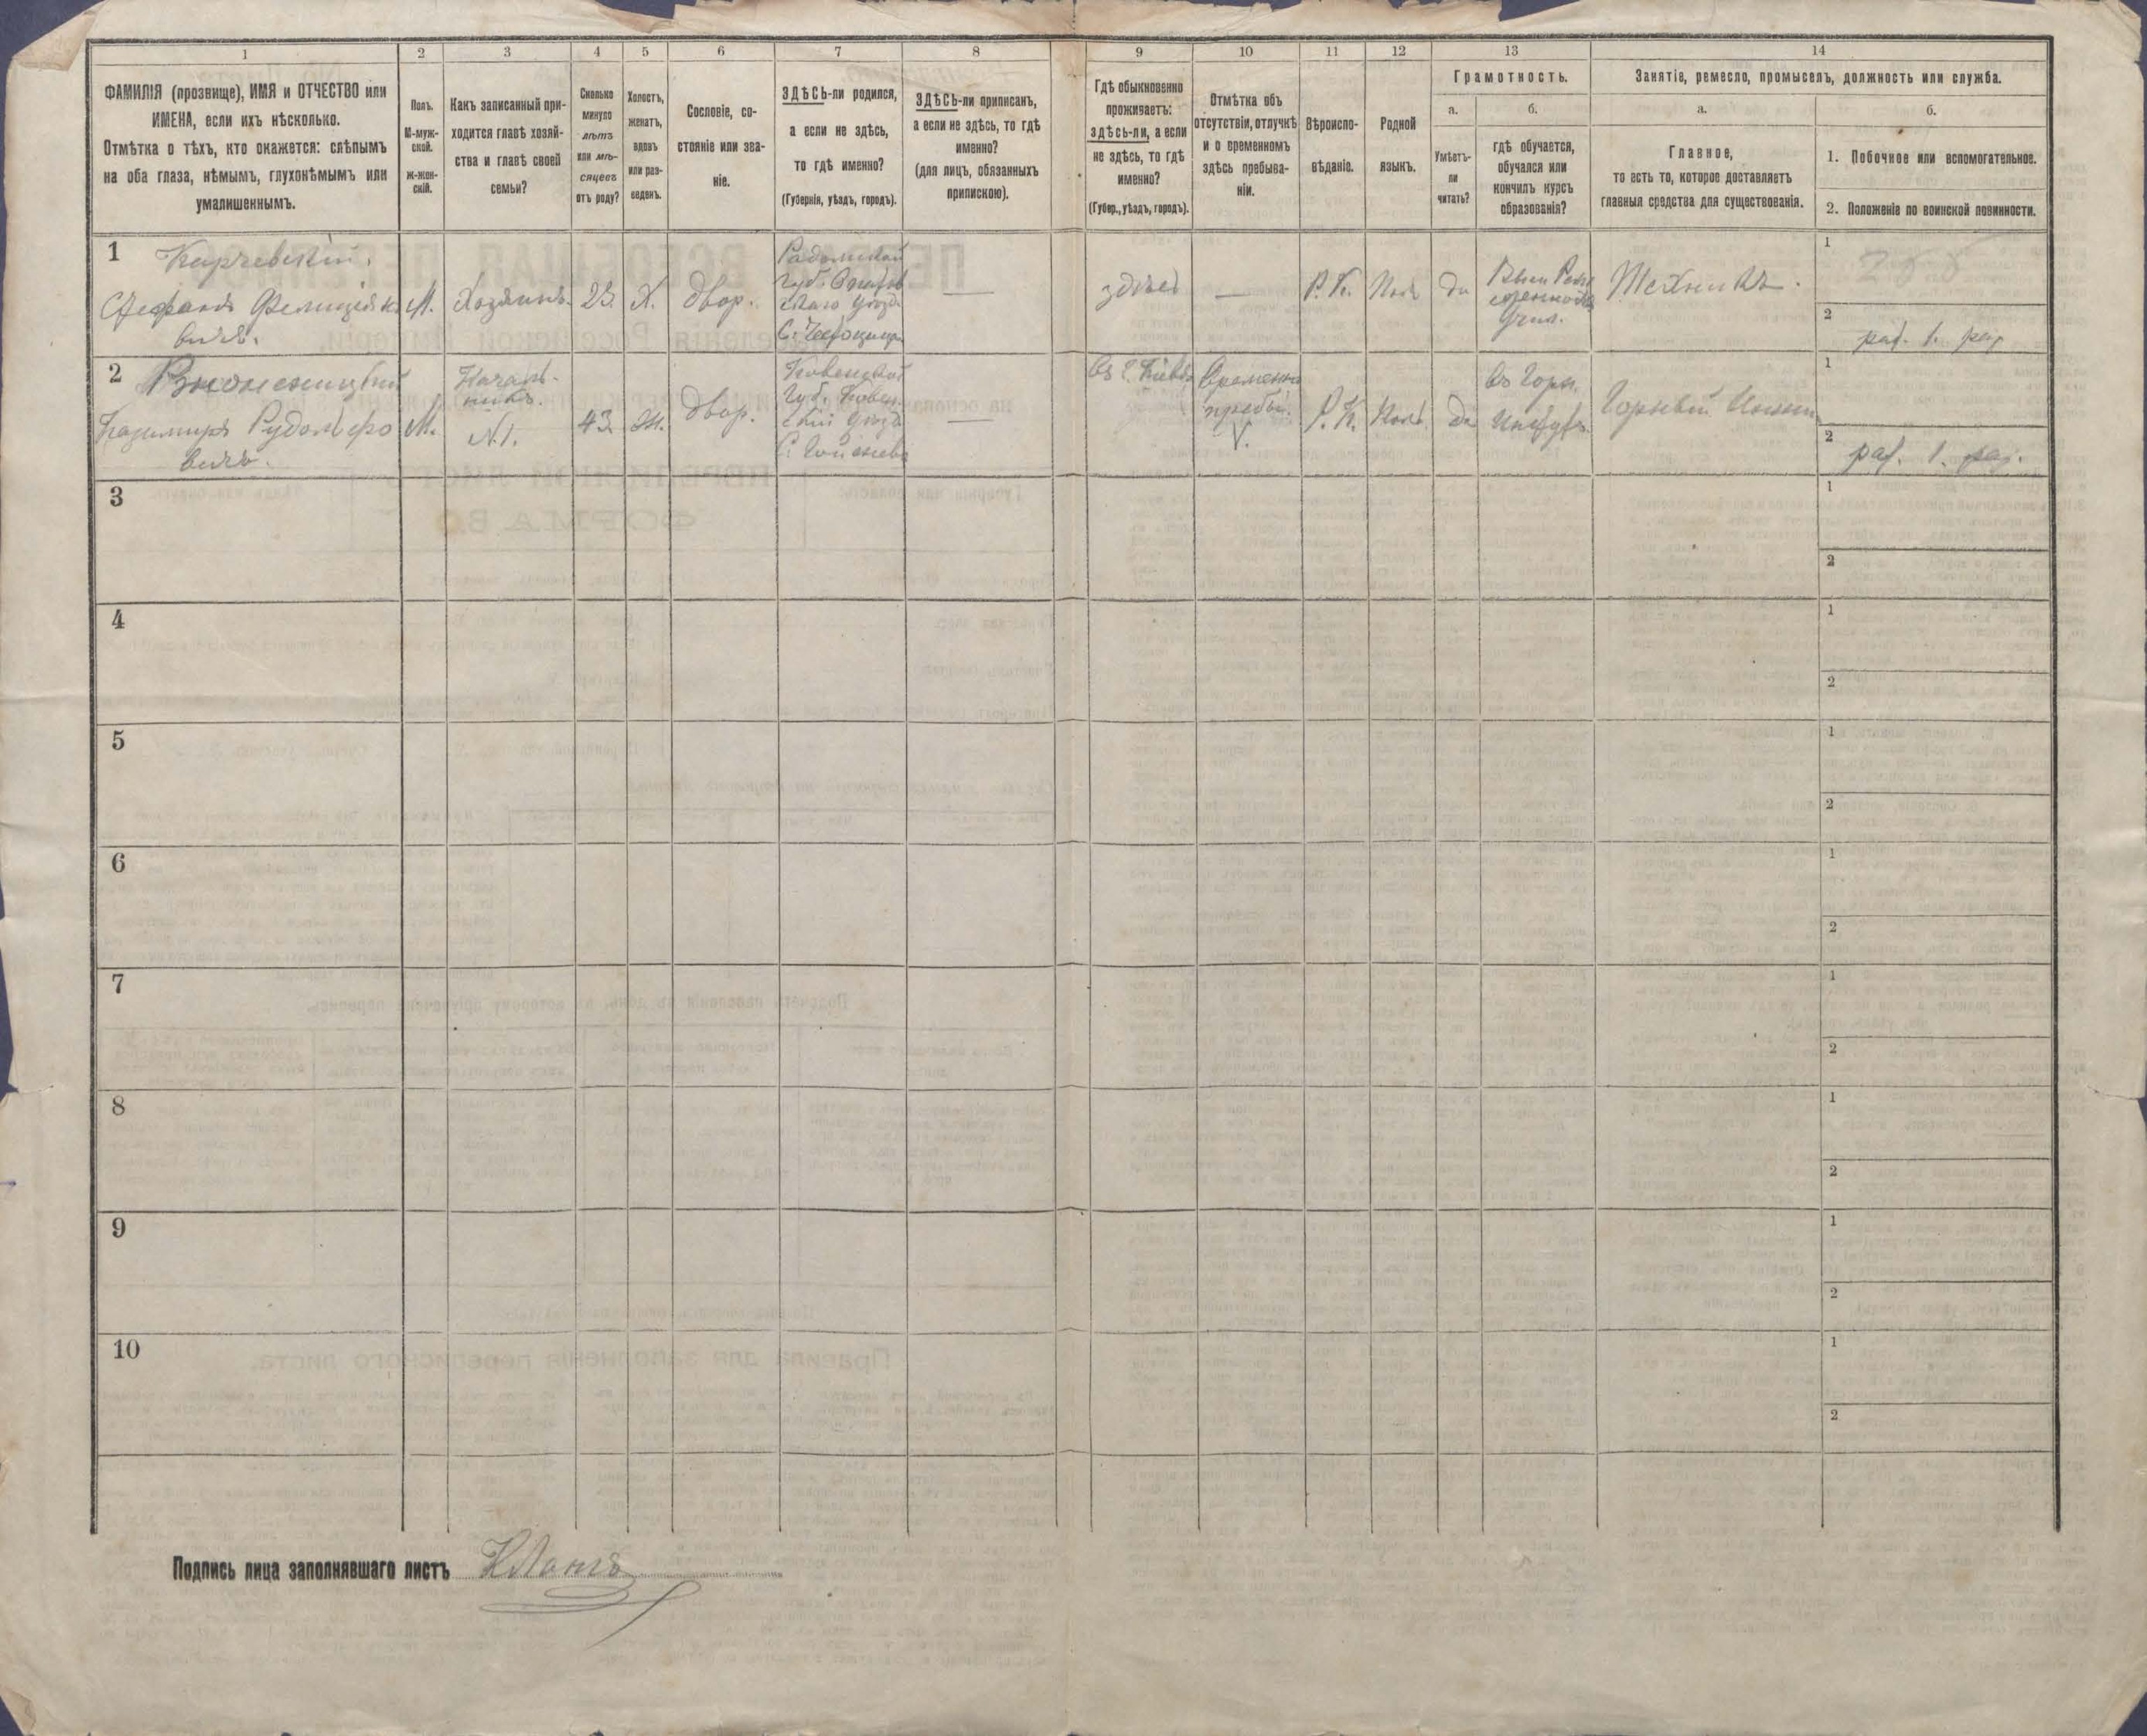 1 2 3 4 5 6 7 8 9 10 11 12 13 14
ФАМИЛІЯ (прозвище), ИМЯ и ОТЧЕСТВО или
ИМЕНА, если ихъ нѣсколько.
Отмѣтка о тѣхъ, кто окажется: слѣпымъ
на оба глаза, нѣмымъ, глухонѣмымъ или
умалишеннымъ.
Полъ.
М-муж-
ской.
Ж-жен-
скій.
Какъ записанный при-
ходится главѣ хозяй-
ства и главѣ своей
семьи?
Сколько
минуло
лѣтъ
или мѣ-
сяцевъ
отъ роду?
Холостъ,
женатъ,
вдовъ
или раз-
веденъ.
Сословіе, со-
стояніе или зва-
ніе.
ЗДѢСЬ-ли родился,
а если не здѣсь,
то гдѣ именно?
(Губернія, уѣздъ, городъ).
ЗДѢСЬ-ли приписанъ,
а если не здѣсь, то гдѣ
именно?
(для лицъ, обязанныхъ
припискою).
Гдѣ обыкновенно
проживаетъ:
здѣсь-ли, а если
не здѣсь, то гдѣ
именно?
(Губер., уѣздъ, городъ).
Отмѣтка объ
отсутствіи, отлучкѣ
и о временномъ
здѣсь пребыва-
ніи.
Вѣроиспо-
вѣданіе.
Родной
языкъ.
Грамотность.
а.
Умѣетъ-
ли
читать?
б.
гдѣ обучается,
обучался или
кончилъ курсъ
образованія?
Занятіе, ремесло, промыселъ, должность или служба.
а.
Главное,
то есть то, которое доставляетъ
главныя средства для существованія.
б.
1. Побочное или вспомогательное.
2. Положеніе по воинской повинности.
1
Карчевскій.
Стефанъ
вичъ.
М.
Хозяинъ.
Х.
двор.
Радомской
губ.
уѣзд.
—
здѣсь
—
Р. К.
Пол.
да
учил.
Техникъ.
1
2
1. раз
2
Казимиръ Рудольфо
вичъ.
М.
Началь-
никъ.
N. 1.
43.
ж.
двор.
Ковенской
губ. Ковен.
скій уѣзд
—
въ г. Кіевѣ
Временно
пребыв.
V.
Р. К.
Пол.
да
въ Горн.
Инстут.
Горный Инжен
1
2
1. раз.
3
1
2
4
1
2
5
1
2
6
1
2
7
1
2
8
1
2
9
1
2
10
1
2
Подпись лица заполнявшаго листъ